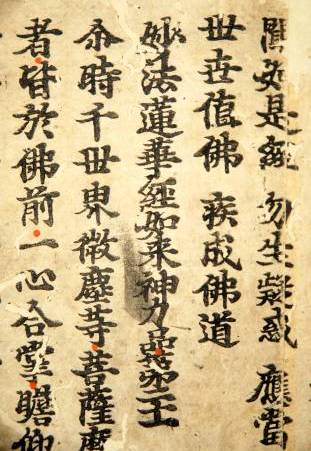 聞如是經 勿生疑惑 應當
世世值佛 疾成佛道
妙法蓮華經如来神力品第二十一
尒時千世界微塵等菩薩摩
者皆於佛前一心合掌瞻仰